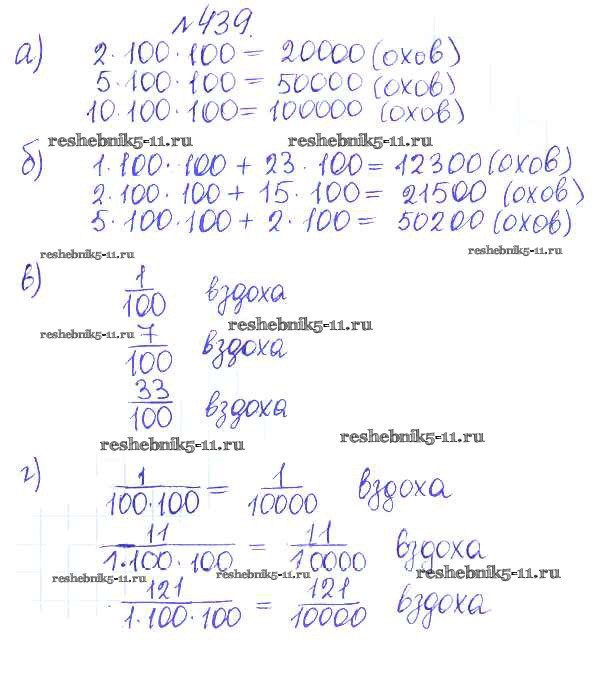 №439.
а) 2·100·100 = 20000 (охов)
5·100·100 = 50000 (охов)
10·100·100 = 100000 (охов)
reshebnik5-11.ru reshebnik5-11.ru
б) 1·100·100 + 23·100 = 12300 (охов)
2·100·100 + 15·100 = 21500 (охов)
5·100·100 + 2·100 = 50200 (охов)
reshebnik5-11.ru reshebnik5-11.ru
в) 1/100 вздоха
reshebnik5-11.ru
reshebnik5-11.ru
7/100 вздоха
33/100 вздоха
reshebnik5-11.ru reshebnik5-11.ru
г) 1/100·100 = 1/10000 вздоха
11/1·100·100 = 11/10000 вздоха
reshebnik5-11.ru reshebnik5-11.ru reshebnik5-11.ru
121/1·100·100 = 121/10000 вздоха